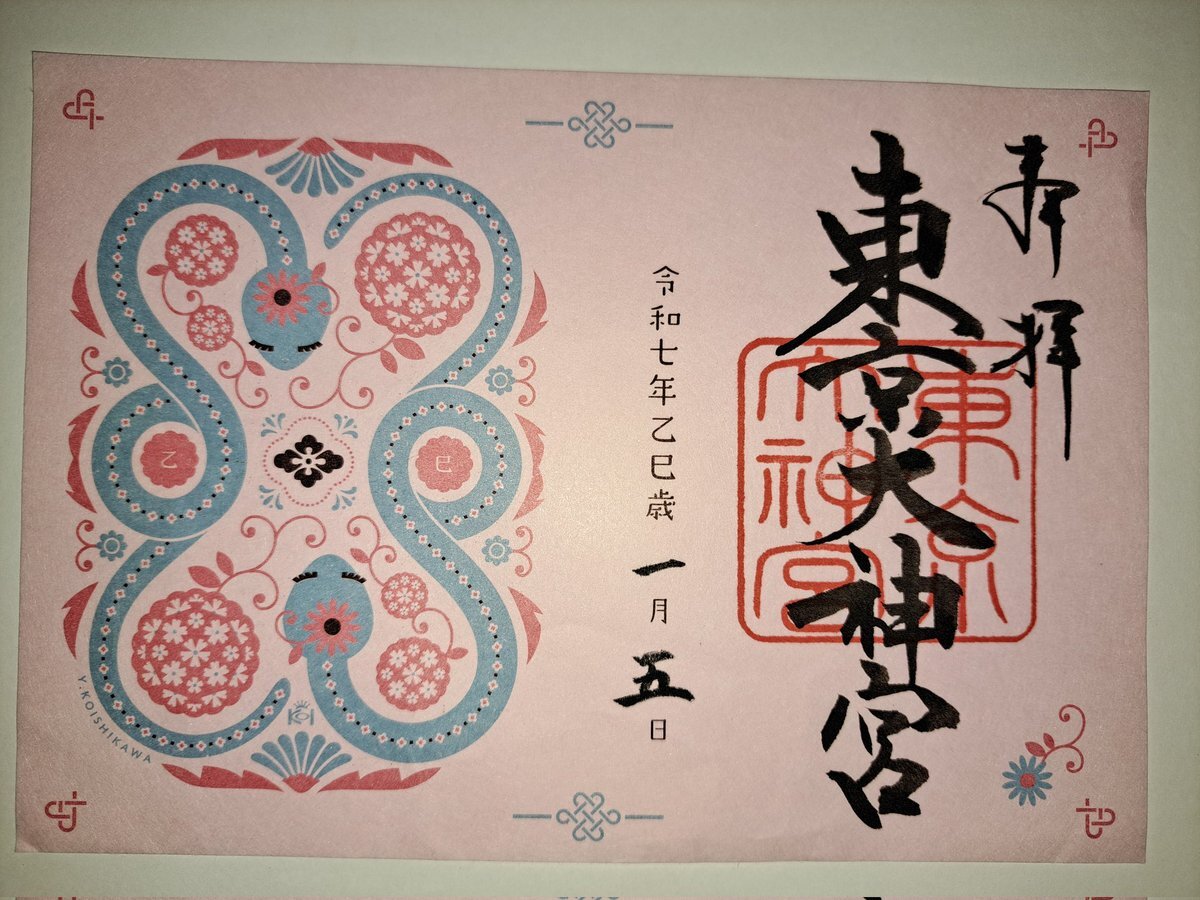 奉拝
東京大神宮
東京
大神宮
令和七年乙巳歳 一月 五日
乙
巳
Y.KOISHIKAWA